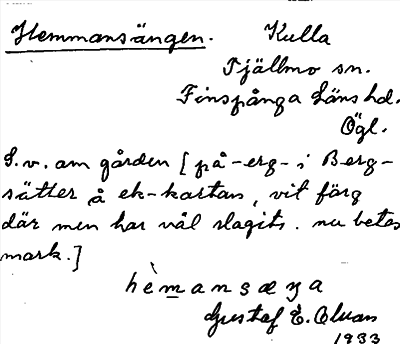 Hemmansängen. Kulla
Tjällmo sn.
Finspånga Läns hd.
Ögl.
S.v. om gården [på -erg- i Berg-
sätter å ek-kartan, vit färg
där men har väl slagits. nu betes
mark.]
hèmansæŋa
Gustaf E. Olsson
1933